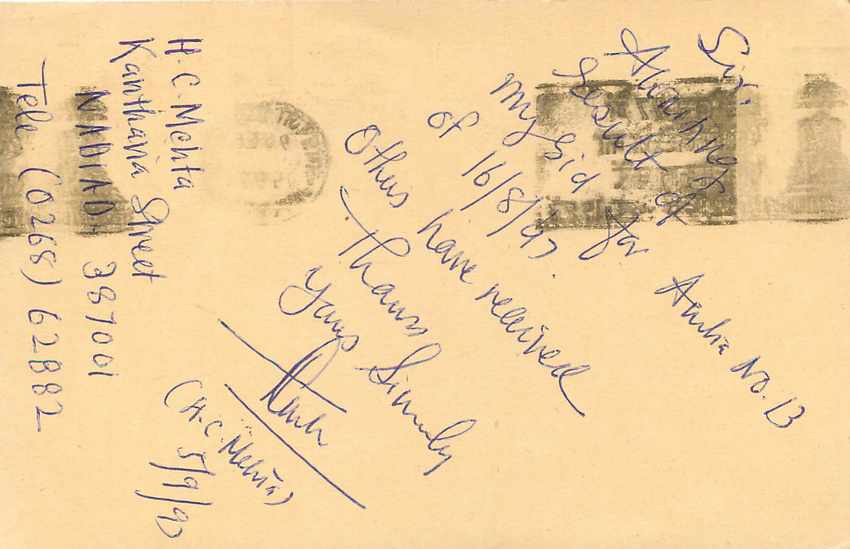 Sir.
Awaiting
result of
my bid for Antha No. 13
of 16/8/97.
Others have received
Thanks
Yours Sincerely
(H.C. Mehta)
5/9/97
H.C. Mehta
Kantharia Street
NADIAD. 387001
Tele (0268) 62882